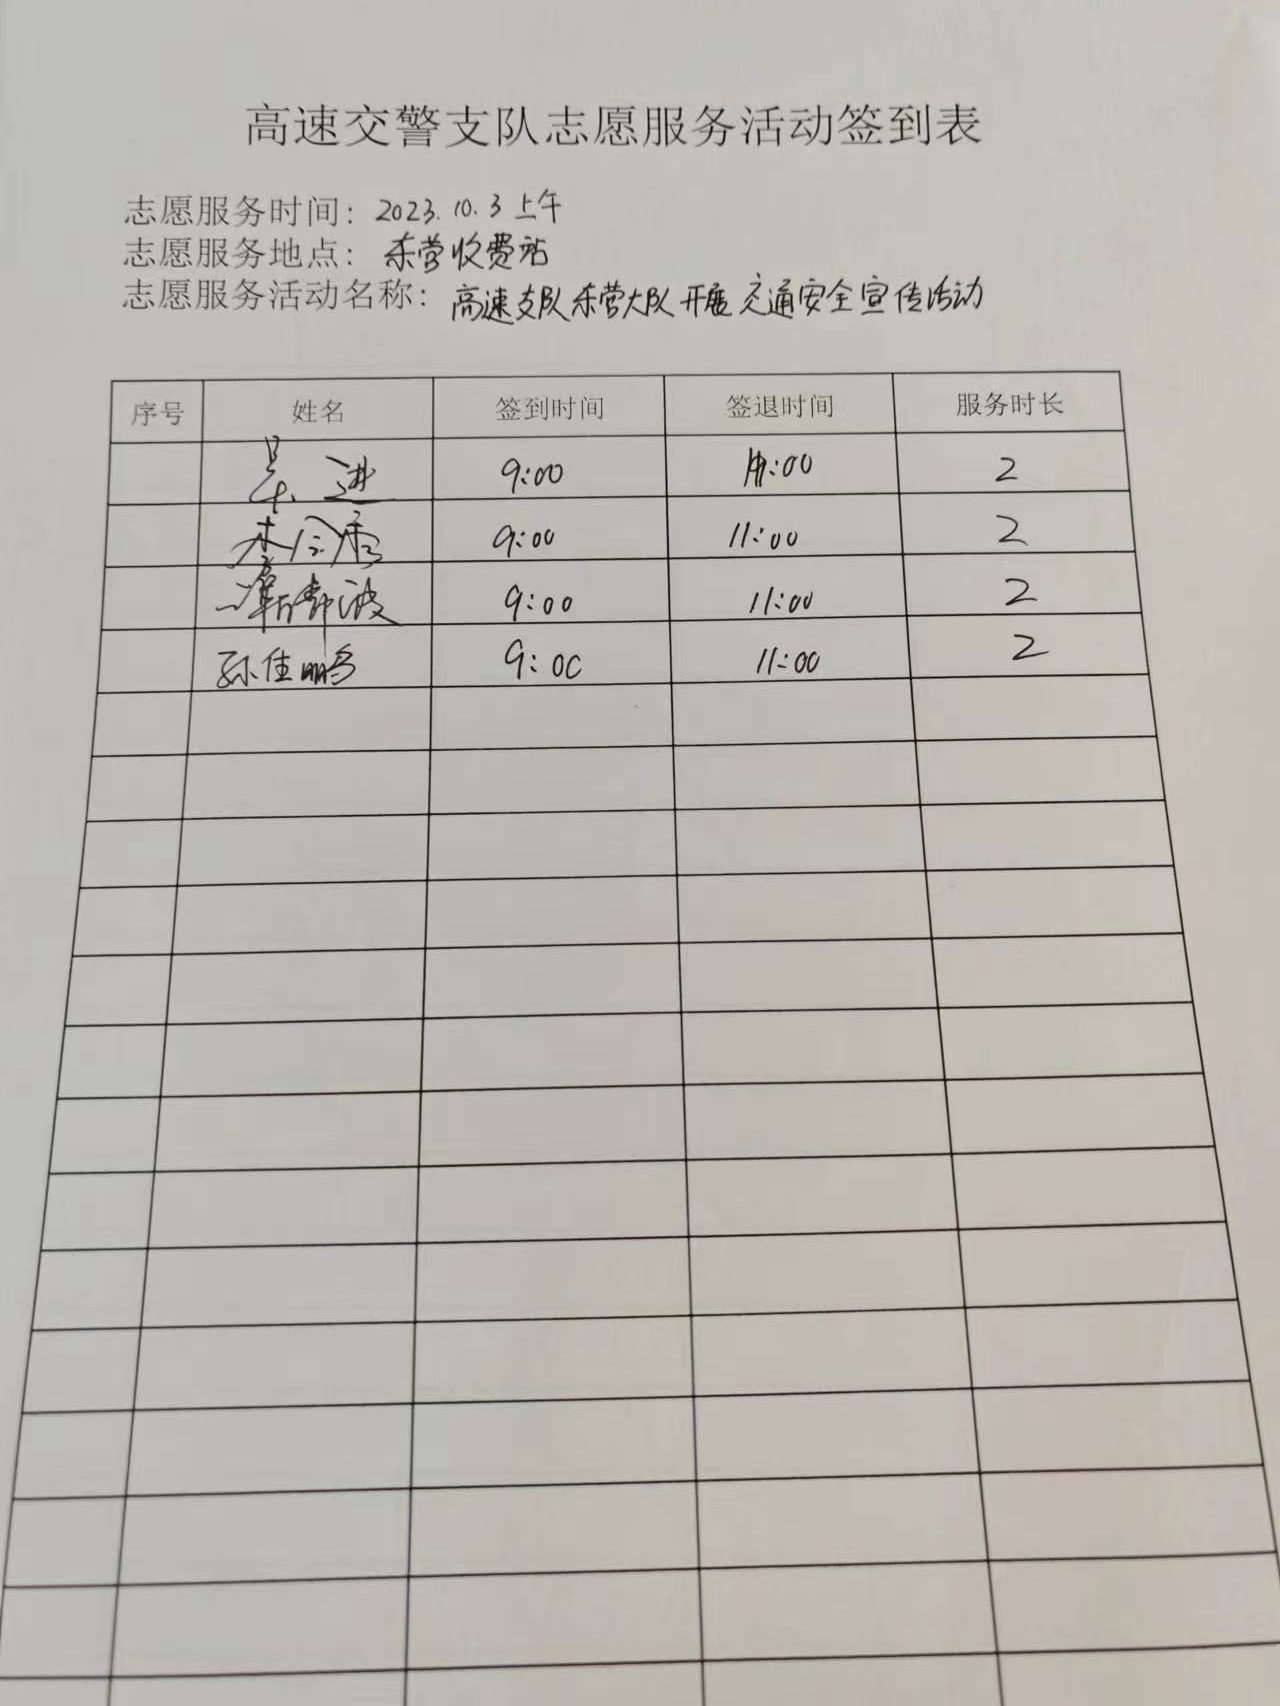 高速交警支队志愿服务活动签到表
志愿服务时间：2023.10.3上午
志愿服务地点：东营收费站
志愿服务活动名称：高速支队东营大队开展交通安全宣传活动
序号 姓名 签到时间 签退时间 服务时长
吴进 9:00 11:00 2
9:00 11:00 2
波 9:00 11:00 2
孙佳鹏 9:00 11:00 2